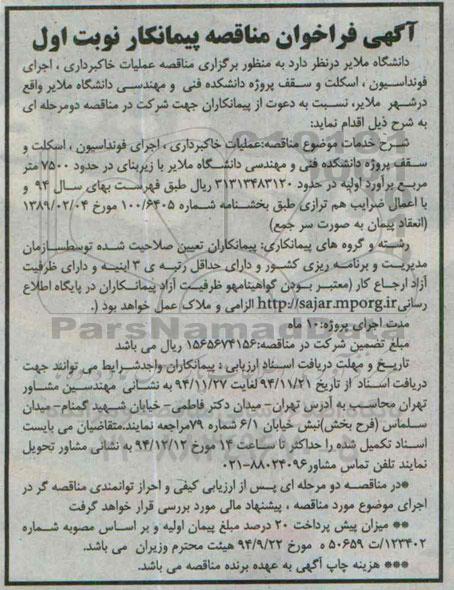 آگهی فراخوان مناقصه پیمانکار نوبت اول
دانشگاه ملایر درنظر دارد به منظور برگزاری مناقصه عملیات خاکبرداری ، اجرای
فونداسیون ، اسکلت و سقف پروژه دانشکده فنی و مهندسی دانشگاه ملایر واقع
درشهر ملایر، نسبت به دعوت از پیمانکاران جهت شرکت در مناقصه دومرحله ای
به شرح ذیل اقدام نماید:
شرح خدمات موضوع مناقصه:عملیات خاکبرداری ، اجرای فونداسیون ، اسکلت و
سقف پروژه دانشکده فنی و مهندسی دانشگاه ملایر با زیربنای در حدود ۷۵۰۰ متر
مربع برآورد اولیه در حدود ۳۱۳۱۳۴۸۳۱۲۰ ریال طبق فهرست بهای سال ۹۴ و
با اعمال ضرایب هم ترازی طبق بخشنامه شماره ۱۰۰/۶۴۰۵ مورخ ۱۳۸۹/۰۲/۰۴
(انعقاد پیمان به صورت سر جمع)
رشته و گروه های پیمانکاری: پیمانکاران تعیین صلاحیت شده توسطسازمان
مدیریت و برنامه ریزی کشور و دارای حداقل رتبه ی ۳ ابنیه و دارای ظرفیت
آزاد ارجاع کار (معتبر بودن گواهینامهو ظرفیت آزاد پیمانکاران در پایگاه اطلاع
رسانیhttp://sajar.mporg.ir الزامی و ملاک عمل خواهد بود ).
مدت اجرای پروژه:۱۰ ماه
مبلغ تضمین شرکت در مناقصه:۱۵۶۵۶۷۴۱۵۶ ریال می باشد
تاریخ و مهلت دریافت اسناد ارزیابی : پیمانکاران واجدشرایط می توانند جهت
دریافت اسناد از تاریخ ۹۴/۱۱/۲۱ لغایت ۹۴/۱۱/۲۷ به نشانی مهندسین مشاور
تهران محاسب به آدرس تهران- میدان دکتر فاطمی- خیابان شهید گمنام- میدان
سلماس (فرح بخش)نبش خیابان ۶/۱ شماره ۷۹مراجعه نمایند.متقاضیان می بایست
اسناد تکمیل شده را حداکثر تا ساعت ۱۴ مورخ ۹۴/۱۲/۱۲ به نشانی مشاور تحویل
نمایند تلفن تماس مشاور۸۸۰۲۴۰۹۶-۰۲۱
*در مناقصه دو مرحله ای پس از ارزیابی کیفی و احراز توانمندی مناقصه گر در
اجرای موضوع مورد مناقصه ، پیشنهاد مالی مورد بررسی قرار خواهد گرفت
** میزان پیش پرداخت ۲۰ درصد مبلغ پیمان اولیه و بر اساس مصوبه شماره
۱۲۳۴۰۲/ت ۵۰۶۵۹ ه مورخ ۹۴/۹/۲۲ هیئت محترم وزیران می باشد.
*** هزینه چاپ آگهی به عهده برنده مناقصه می باشد.
ParsNamadData